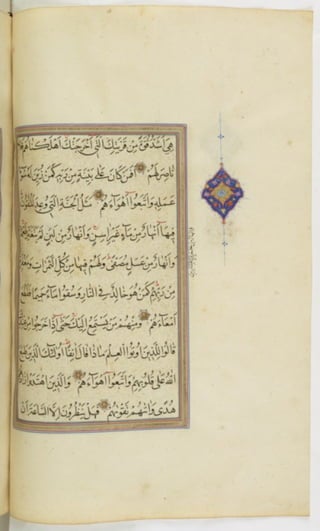 هِيَ أَشَدُّ قُوَّةً مِنْ قَرْيَتِكَ الَّتِي أَخْرَجَتْكَ أَهْلَكْنَاهُمْ فَلَا
نَاصِرَ لَهُمْ أَفَمَنْ كَانَ عَلَى بَيِّنَةٍ مِنْ رَبِّهِ كَمَنْ زُيِّنَ لَهُ سُوءُ
عَمَلِهِ وَاتَّبَعُوا أَهْوَاءَهُمْ مَثَلُ الْجَنَّةِ الَّتِي وُعِدَ الْمُتَّقُونَ
فِيهَا أَنْهَارٌ مِنْ مَاءٍ غَيْرِ آسِنٍ وَأَنْهَارٌ مِنْ لَبَنٍ لَمْ يَتَغَيَّرْ طَعْمُهُ
وَأَنْهَارٌ مِنْ عَسَلٍ مُصَفًّى وَلَهُمْ فِيهَا مِنْ كُلِّ الثَّمَرَاتِ وَمَغْفِرَةٌ
مِنْ رَبِّهِمْ كَمَنْ هُوَ خَالِدٌ فِي النَّارِ وَسُقُوا مَاءً حَمِيمًا فَقَطَّعَ
أَمْعَاءَهُمْ وَمِنْهُمْ مَنْ يَسْتَمِعُ إِلَيْكَ حَتَّى إِذَا خَرَجُوا مِنْ عِنْدِكَ
قَالُوا لِلَّذِينَ أُوتُوا الْعِلْمَ مَاذَا قَالَ آنِفًا أُولَئِكَ الَّذِينَ طَبَعَ
اللَّهُ عَلَى قُلُوبِهِمْ وَاتَّبَعُوا أَهْوَاءَهُمْ وَالَّذِينَ اهْتَدَوْا زَادَهُمْ
هُدًى وَآتَاهُمْ تَقْوَاهُمْ فَهَلْ يَنْظُرُونَ إِلَّا السَّاعَةَ أَنْ